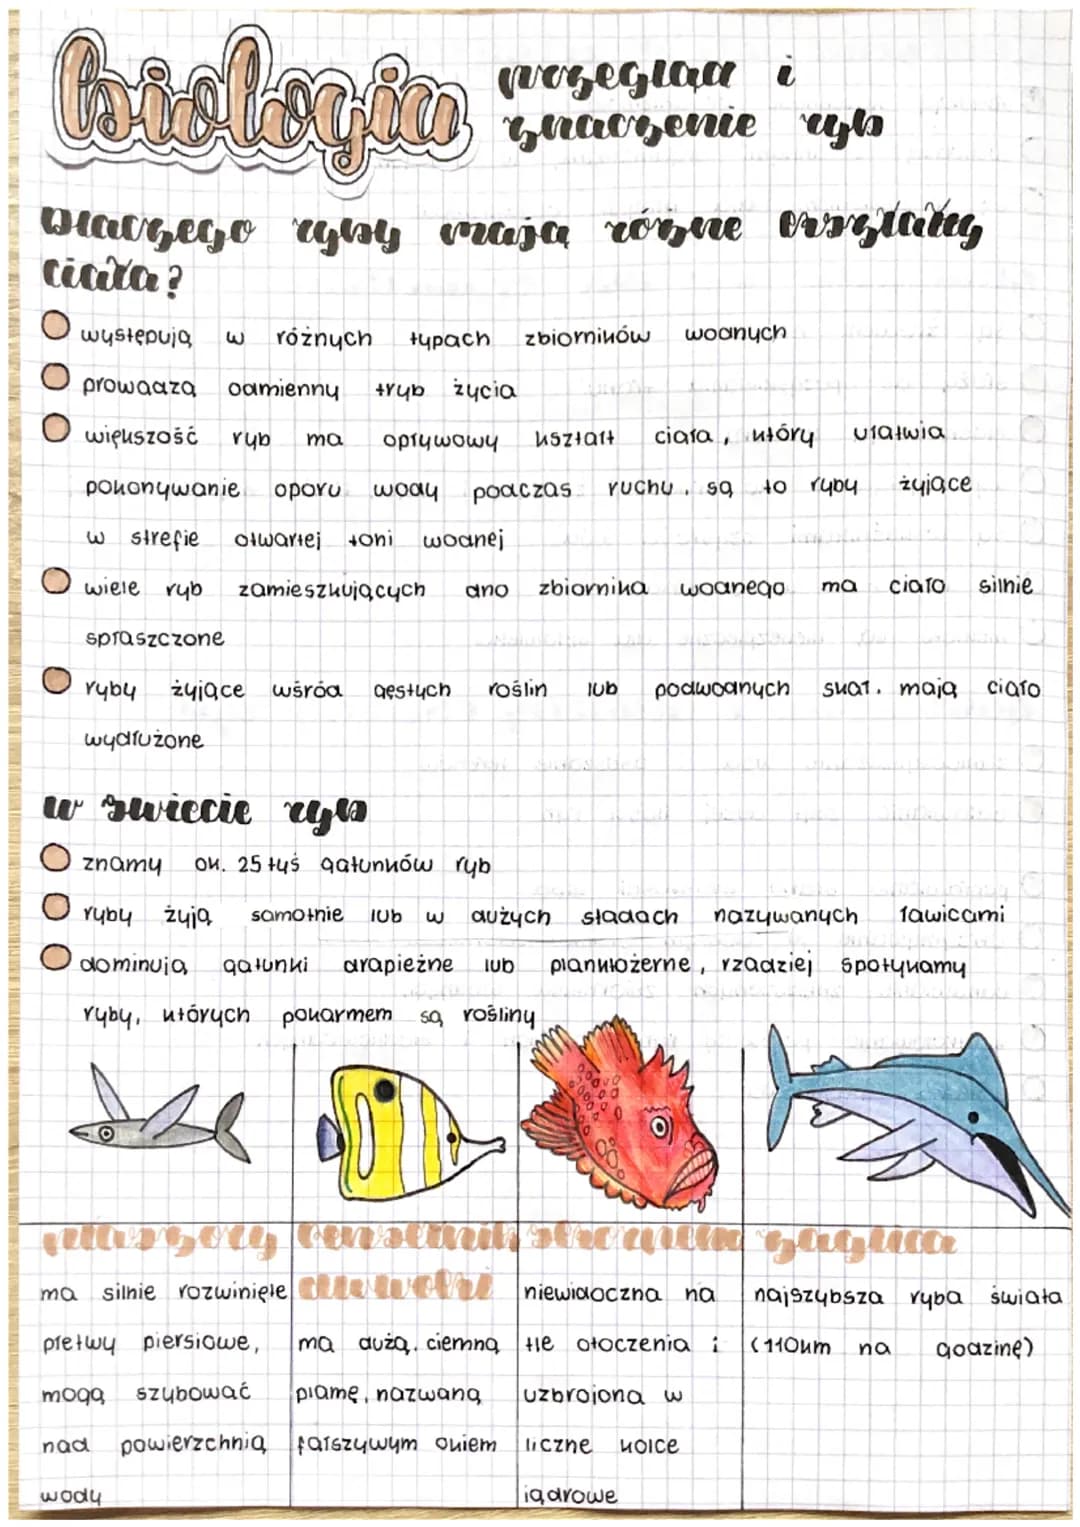 biologia
przegląd i
znaczenie ryb
Dlaczego ryby mają różne kształty
ciała?
występują w różnych typach zbiorników wodnych
prowadzą odmienny tryb życia
większość ryb ma opływowy kształt ciała, który ułatwia
pokonywanie oporu wody podczas ruchu. są to ryby żyjące
w strefie otwartej toni wodnej
wiele ryb zamieszkujących dno zbiornika wodnego ma ciało silnie
spłaszczone
ryby żyjące wśród gęstych roślin lub podwodnych skał. mają ciało
wydłużone
w świecie ryb
znamy ok. 25 tyś gatunków ryb
ryby żyją samotnie lub w dużych stadach nazywanych ławicami
dominują gatunki drapieżne lub planktożerne, rzadziej spotykamy
ryby, których pokarmem są rośliny
ptaszory
ma silnie rozwinięte
płetwy piersiowe,
mogą szybować
nad powierzchnią
wody
ma dużą, ciemną
plamę, nazwaną
fałszywym okiem
niewidoczna na
tle otoczenia i
uzbrojona w
liczne kolce
jądrowe
żaglica
najszybsza ryba świata
(110km na godzinę)